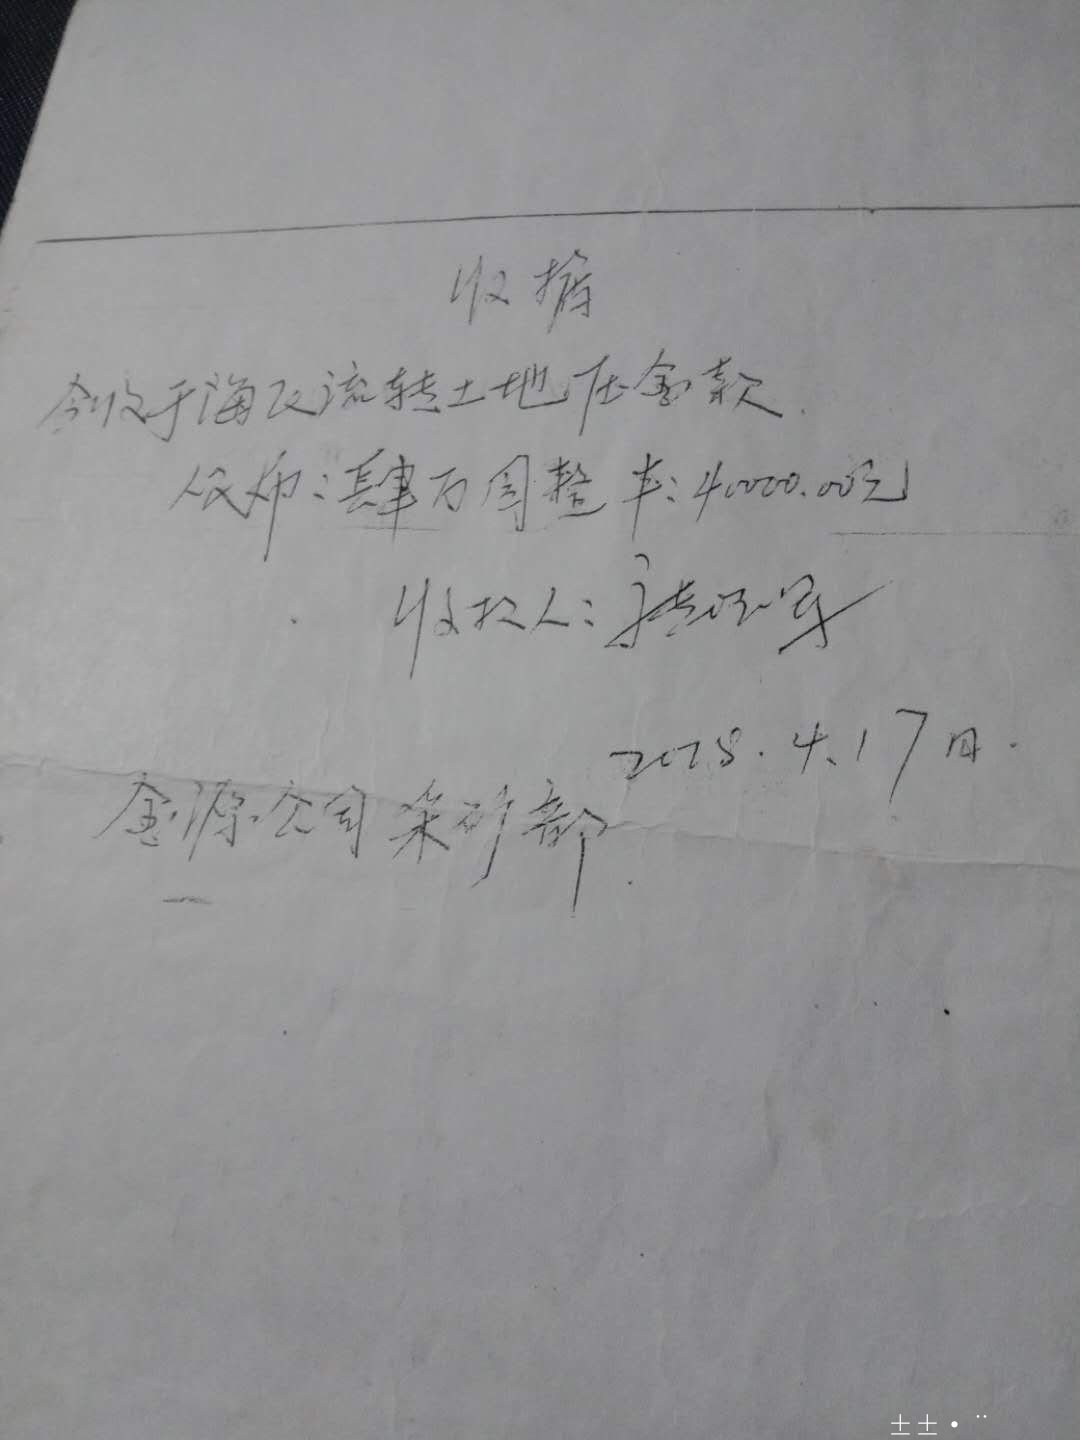 收据
今收于海飞流转土地压金款.
人民币:肆万圆整 ¥:40000.00元
收款人:
2018.4.17日.
金源公司采矿部.
士士•¨